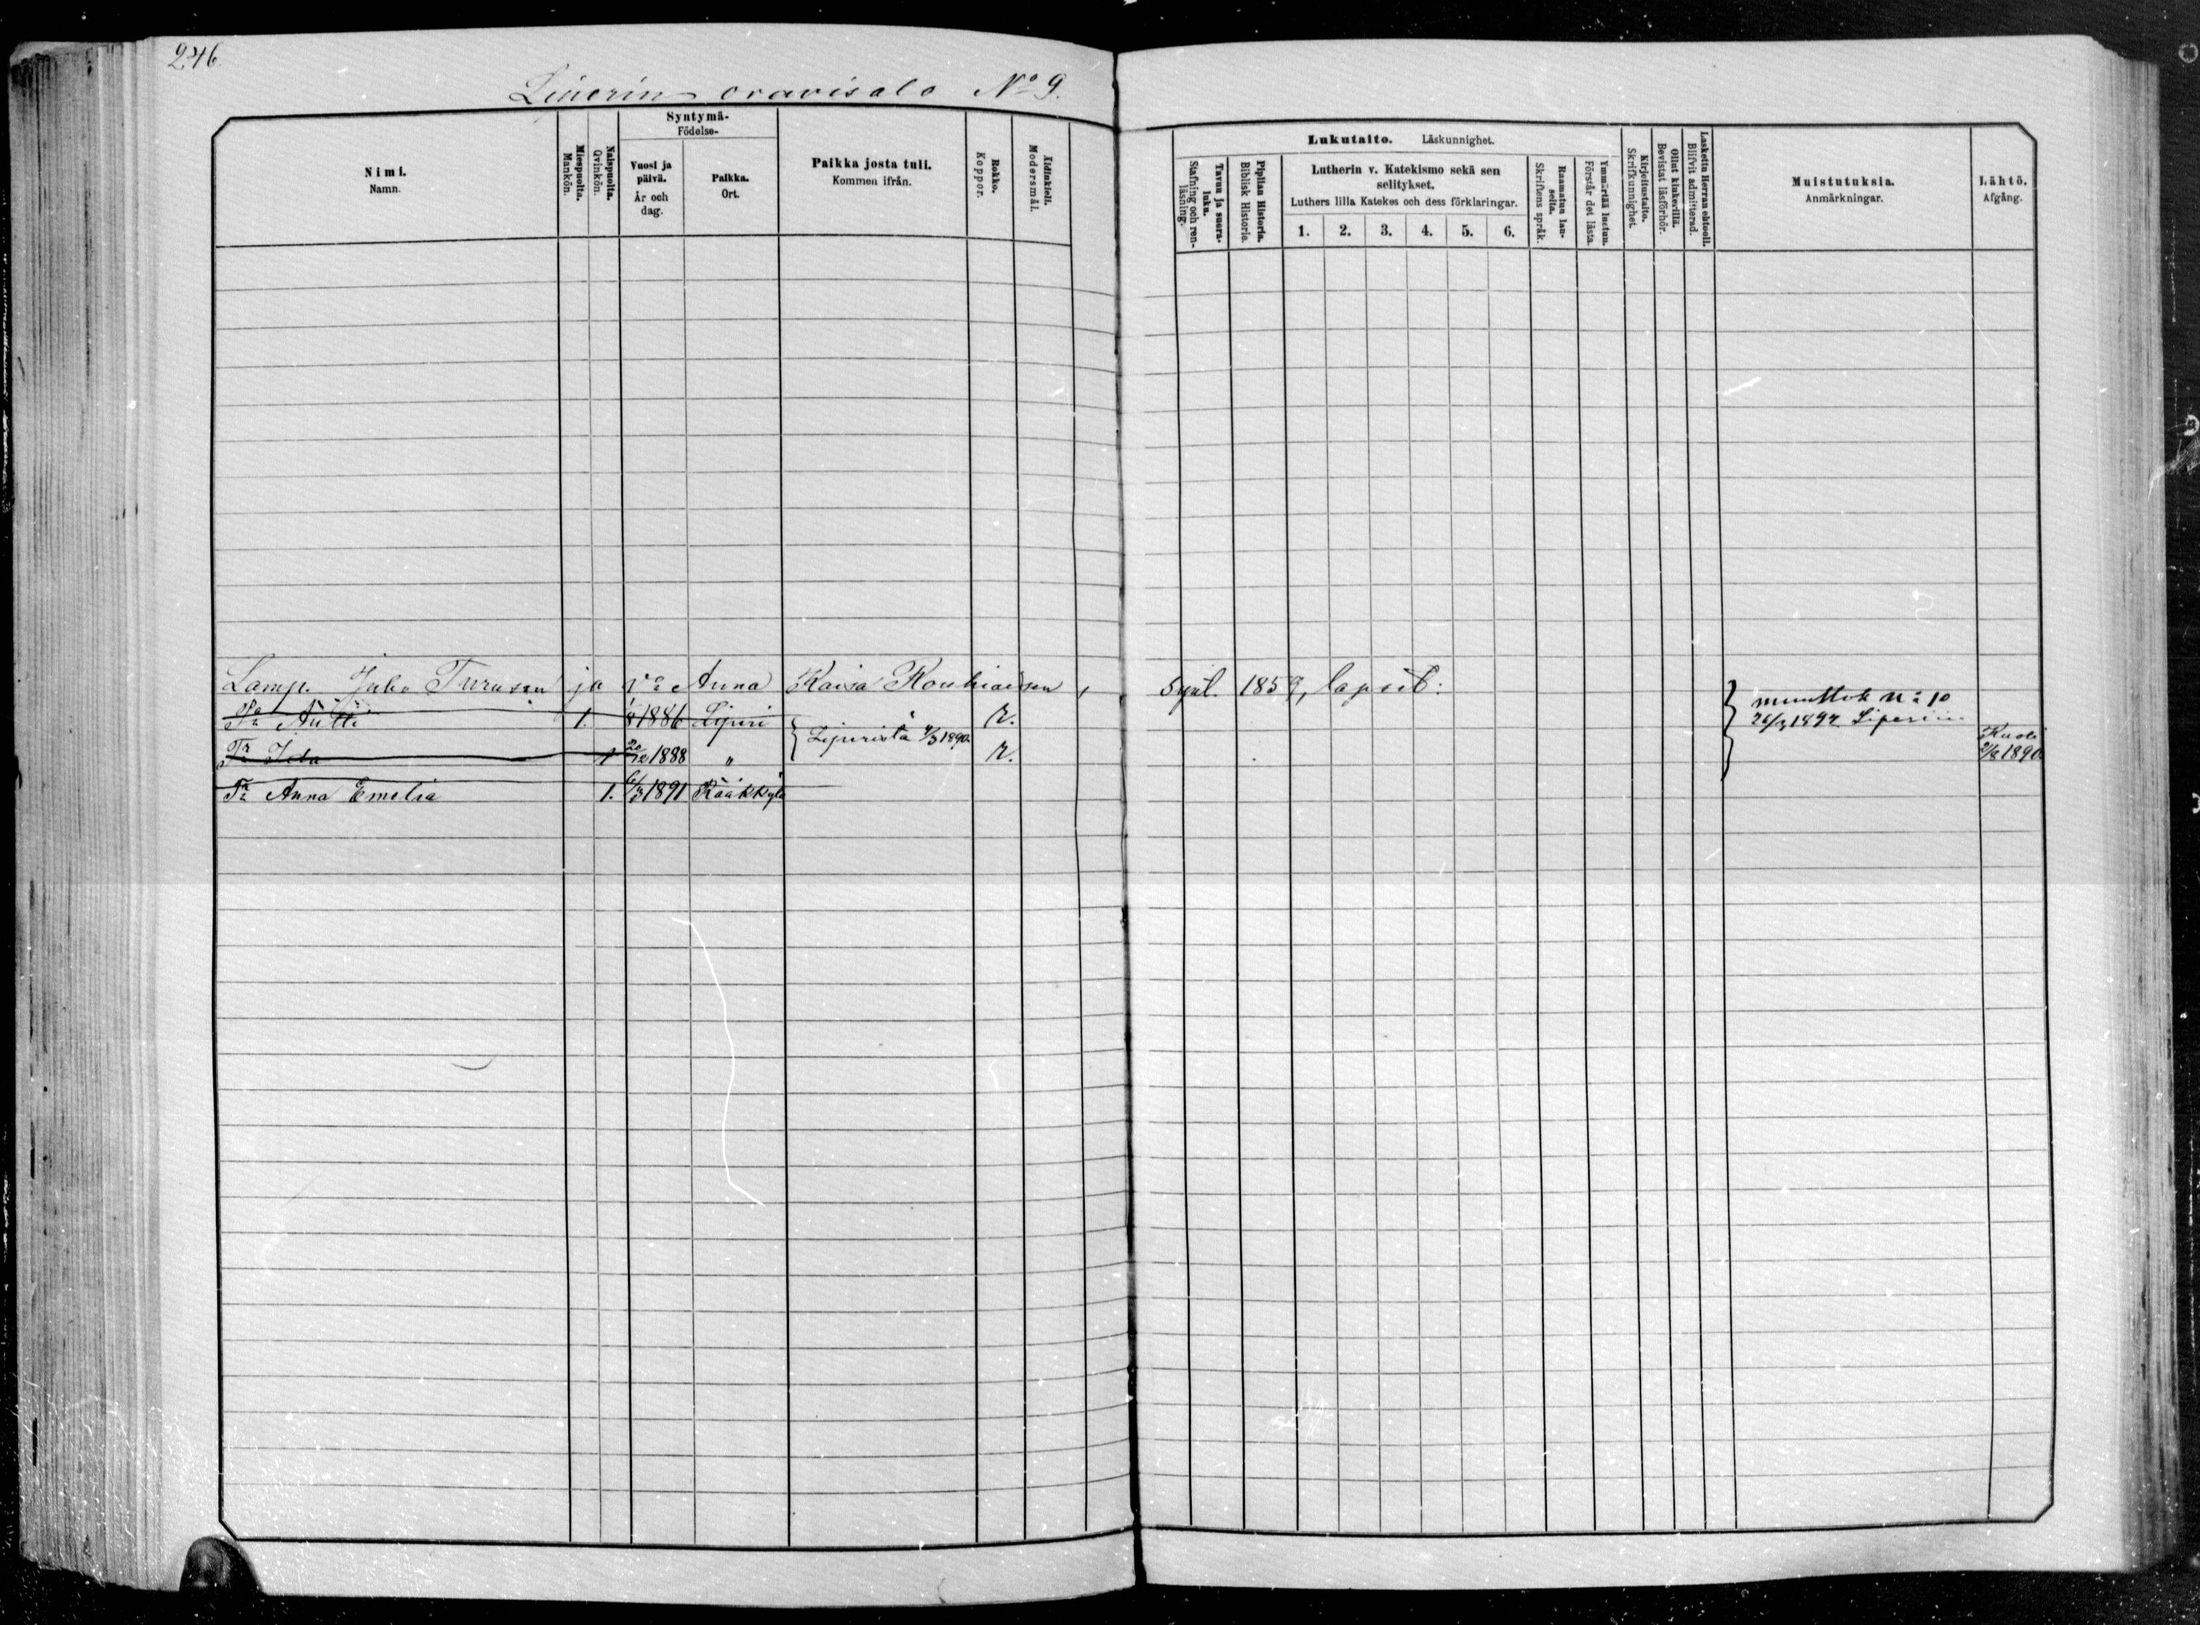 246
Liperin oravisalo No 9.
Nimi.
Namn.
Miespuolta.
Mankön.
Naispuolta.
Qvinkön.
Syntymä-
Födelse-
Vuosi ja päivä.
År och dag.
Paikka.
Ort.
Paikka josta tuli.
Kommen ifrån.
Rokko.
Koppor.
Äidinkieli.
Modersmål.
Lukutaito. Läskunnighet.
Tavuu ja suora-luku.
Stafning och ren-läsning.
Piplian Historia.
Biblisk Historie.
Lutherin v. Katekismo sekä sen selitykset.
Luthers lilla Katekes och dess förklaringar.
1. 2. 3. 4. 5. 6.
Raamatun lau-seita.
Skriftens språk.
Ymmärtää luetun.
Förstår det lästa.
Kirjoitustaito.
Skrifkunnighet.
Ollut kinkerillä.
Bevistat läsförhör.
Laskettu Herran ehtooll.
Blifvit admitterad.
Muistutuksia.
Anmärkningar.
Lähtö.
Afgång.
Lamp. Juho Turusen ja va Anna Kaisa Kouhiaisen, synt. 1859, lapset:
Pa Antti 1. 1886 Liperi r.
Liperistä 1890
muuttok No 10
1892 Liperiin
Tr Ida 1 20/12 1888 " r. Kuoli 1890
Tr Anna Emelia 1. 6/3 1891 Rääkkylä